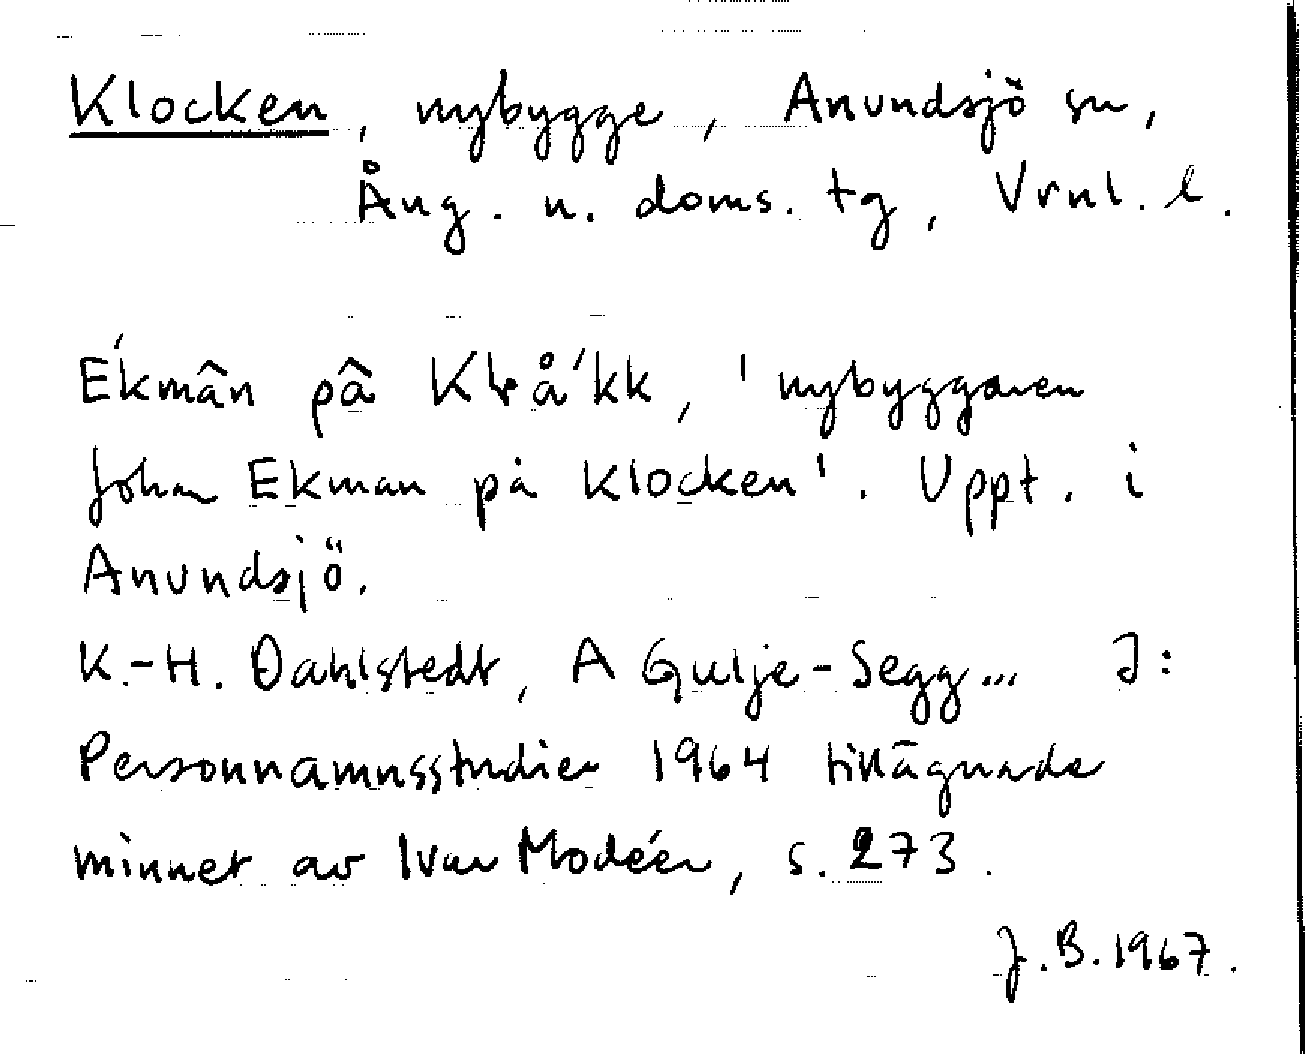 Klocken, nybygge, Anundsjö sn,
Ång. n. doms. tg, Vrnl. l.
E´kmân pâ Klå´kk, 'nybyggaren
Johan Ekman på Klocken'. Uppt. i
Anundsjö.
K.-H. Dahlstedt, A Gulje-Segg... I:
Personnamnsstudier 1964 tillägnade
minnet av Ivar Modéer, s. 273.
J.B. 1967.